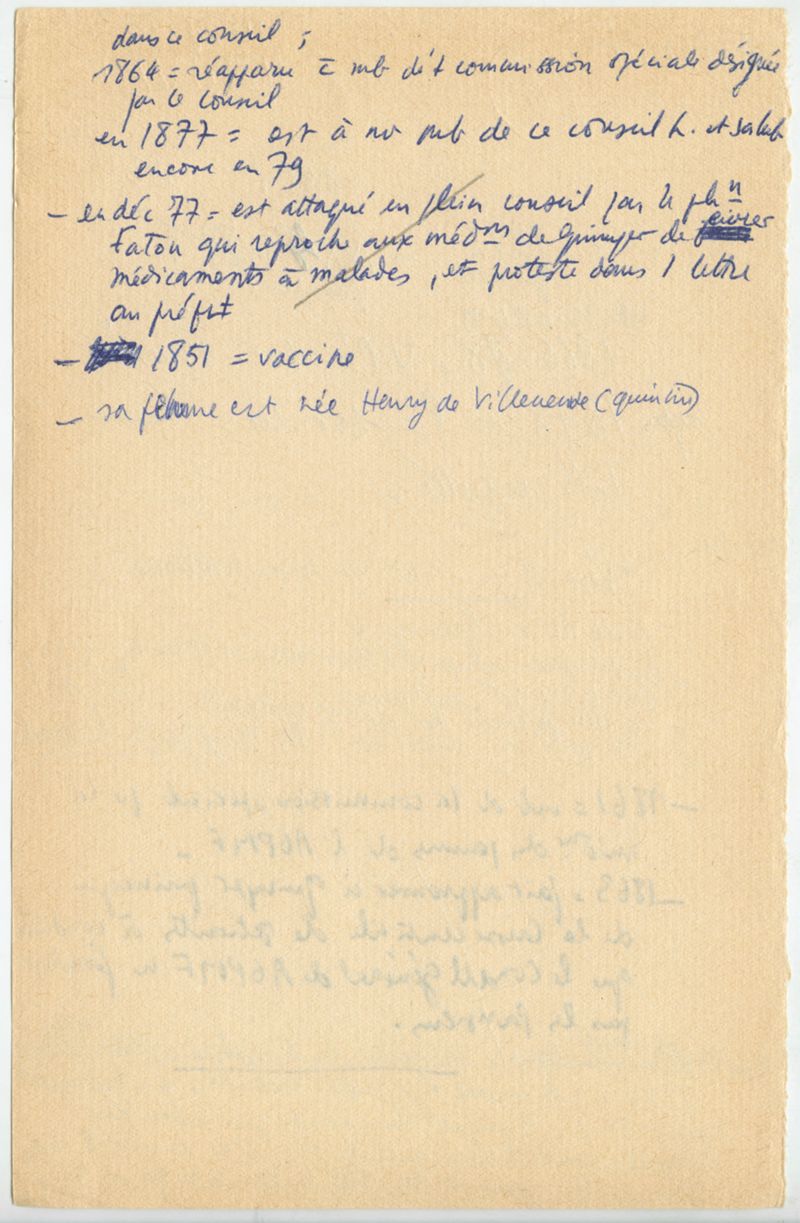 dans ce conseil ;
1864 = réapparu à mb d'1 commission spéciale désignée
par le conseil
en 1877 = est à nv mb de ce conseil h. et salub
encore en 79
– en déc 77 = est attaqué en plein conseil par le phn
Faton qui reproche aux médns de Quimper de
médicaments à malades, et proteste dans 1 lettre
au préfet
– 1851 = vaccine
– sa femme est née Henry de Villeneuve (Quintin)